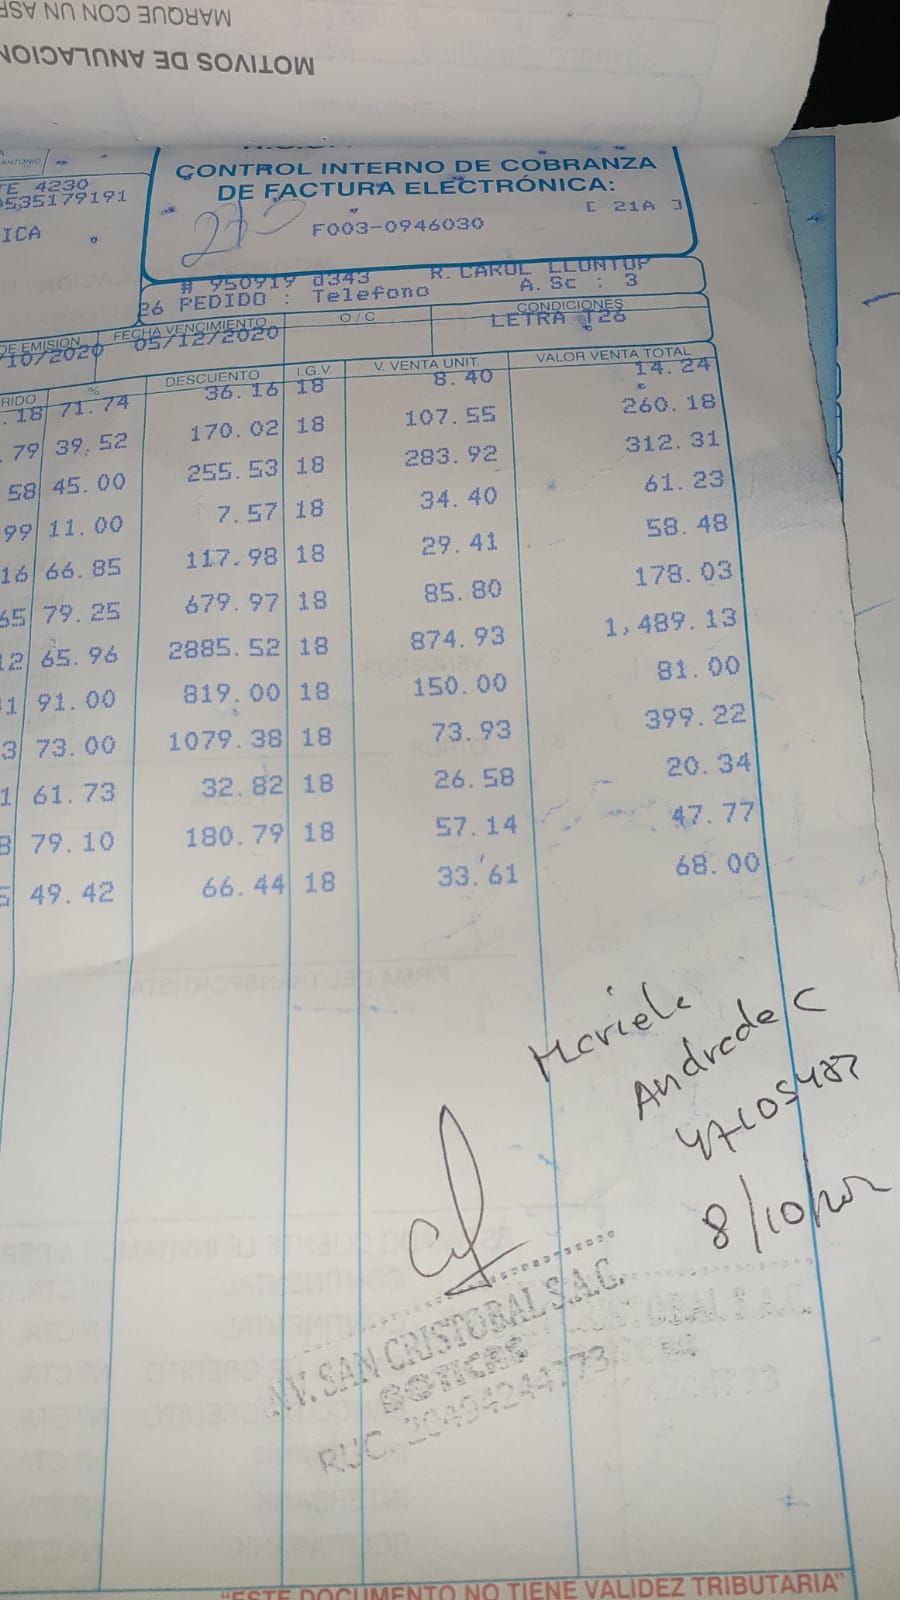 MARQUE CON UN ASP
MOTIVOS DE ANULACION
ANTONIO
TE 4230
0535179191
ICA
CONTROL INTERNO DE COBRANZA
DE FACTURA ELECTRÓNICA:
[ 21A ]
F003-0946030
# 950919 d343 R. CAROL LLONTOP
26 PEDIDO : Telefono A. Sc : 3
DE EMISION FECHA VENCIMIENTO O / C CONDICIONES
/10/2020 05/12/2020 LETRA T26
RIDO % DESCUENTO I.G.V. V. VENTA UNIT. VALOR VENTA TOTAL
.18 71.74 36.16 18 8.40 14.24
.79 39.52 170.02 18 107.55 260.18
58 45.00 255.53 18 283.92 312.31
99 11.00 7.57 18 34.40 61.23
16 66.85 117.98 18 29.41 58.48
65 79.25 679.97 18 85.80 178.03
12 65.96 2885.52 18 874.93 1,489.13
1 91.00 819.00 18 150.00 81.00
3 73.00 1079.38 18 73.93 399.22
1 61.73 32.82 18 26.58 20.34
8 79.10 180.79 18 57.14 47.77
5 49.42 66.44 18 33.61 68.00
FIRMA DEL TRANSPORTISTA
Mariele
Andrade C
47105487
8/10/
NV. SAN CRISTOBAL S.A.C.
BOTICAS
RUC. 20494244773
"ESTE DOCUMENTO NO TIENE VALIDEZ TRIBUTARIA"